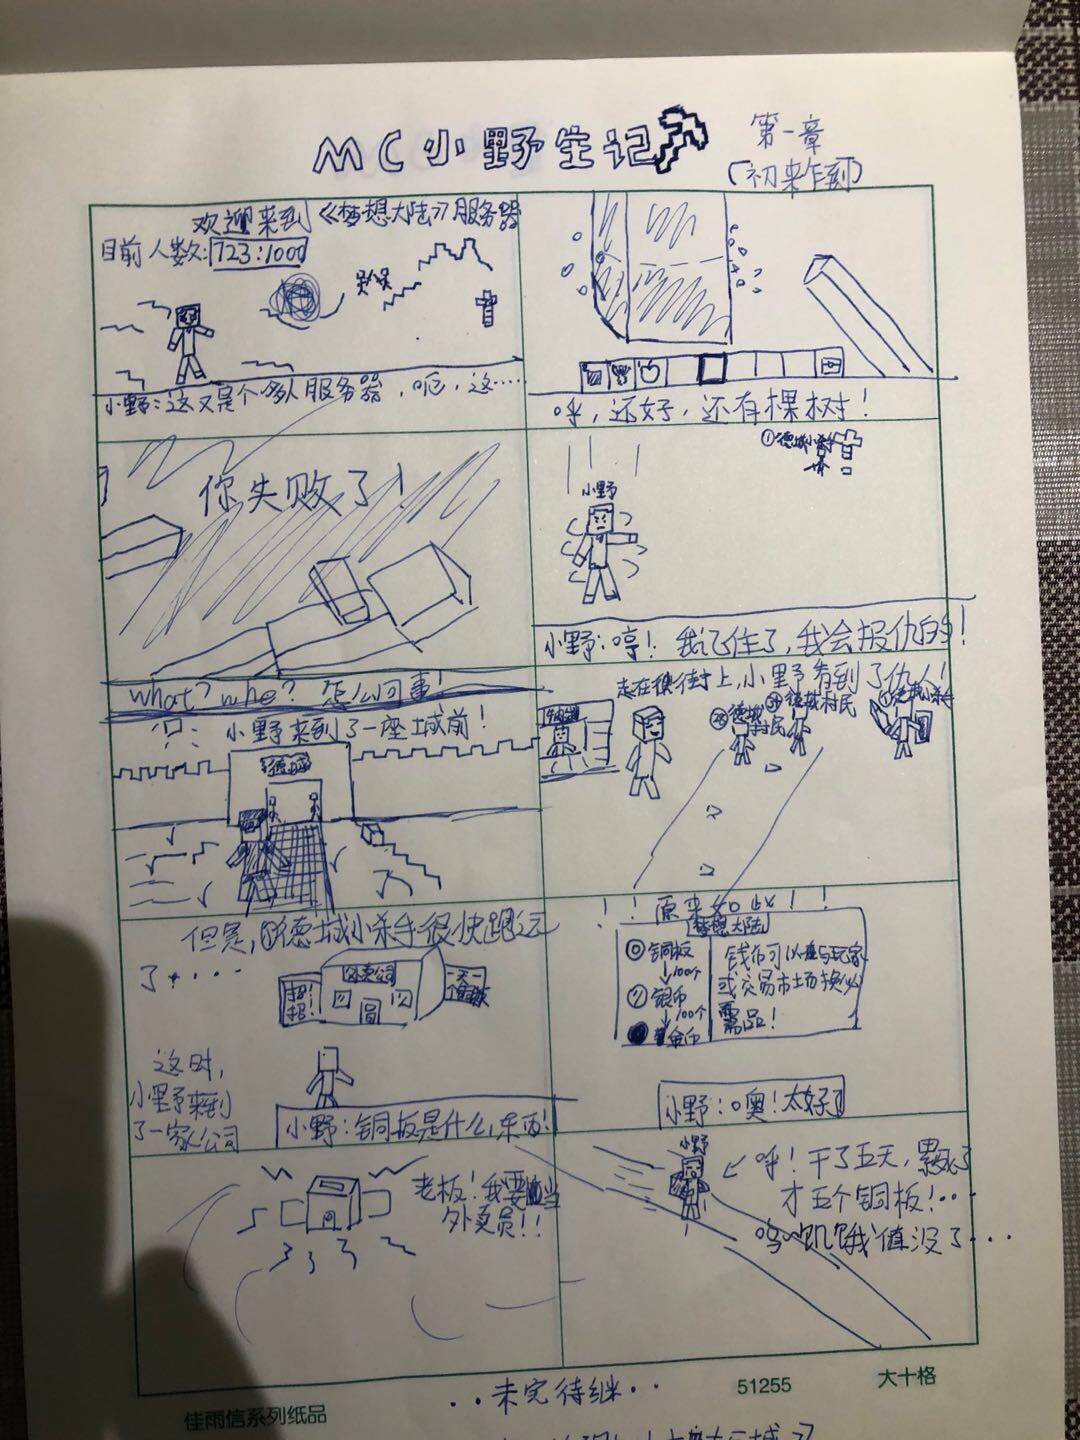 MC小野生记
第一章
(初来乍到)
欢迎来到《梦想大陆》服务器
目前人数:723:1000
小野:这又是个多人服务器,呃,这……
呼,还好,还有棵树!
你失败了!
what? who? 怎么回事!
①德城小杀手
小野
小野:哼!我记住了,我会报仇的!
小野来到了一座城前!
德城
走在街上,小野看到了仇人!
德城村民
德城村民
①德城小杀手
但是,①德城小杀手很快跑远
了……
外卖公司
招!招!
一天一个铜板
这时,
小野来到
了一家公司
小野:铜板是什么东西!
!!原来如此!!
梦想大陆
铜板
↓100个
银币
↓100个
金币
钱币可以与玩家
或交易市场换必
需品!
小野:噢!太好了
老板!我要当
外卖员!!
小野
呼!干了五天,累死了
才五个铜板!…
呜~饥饿值没了…
..未完待继..
佳雨信系列纸品
51255
大十格